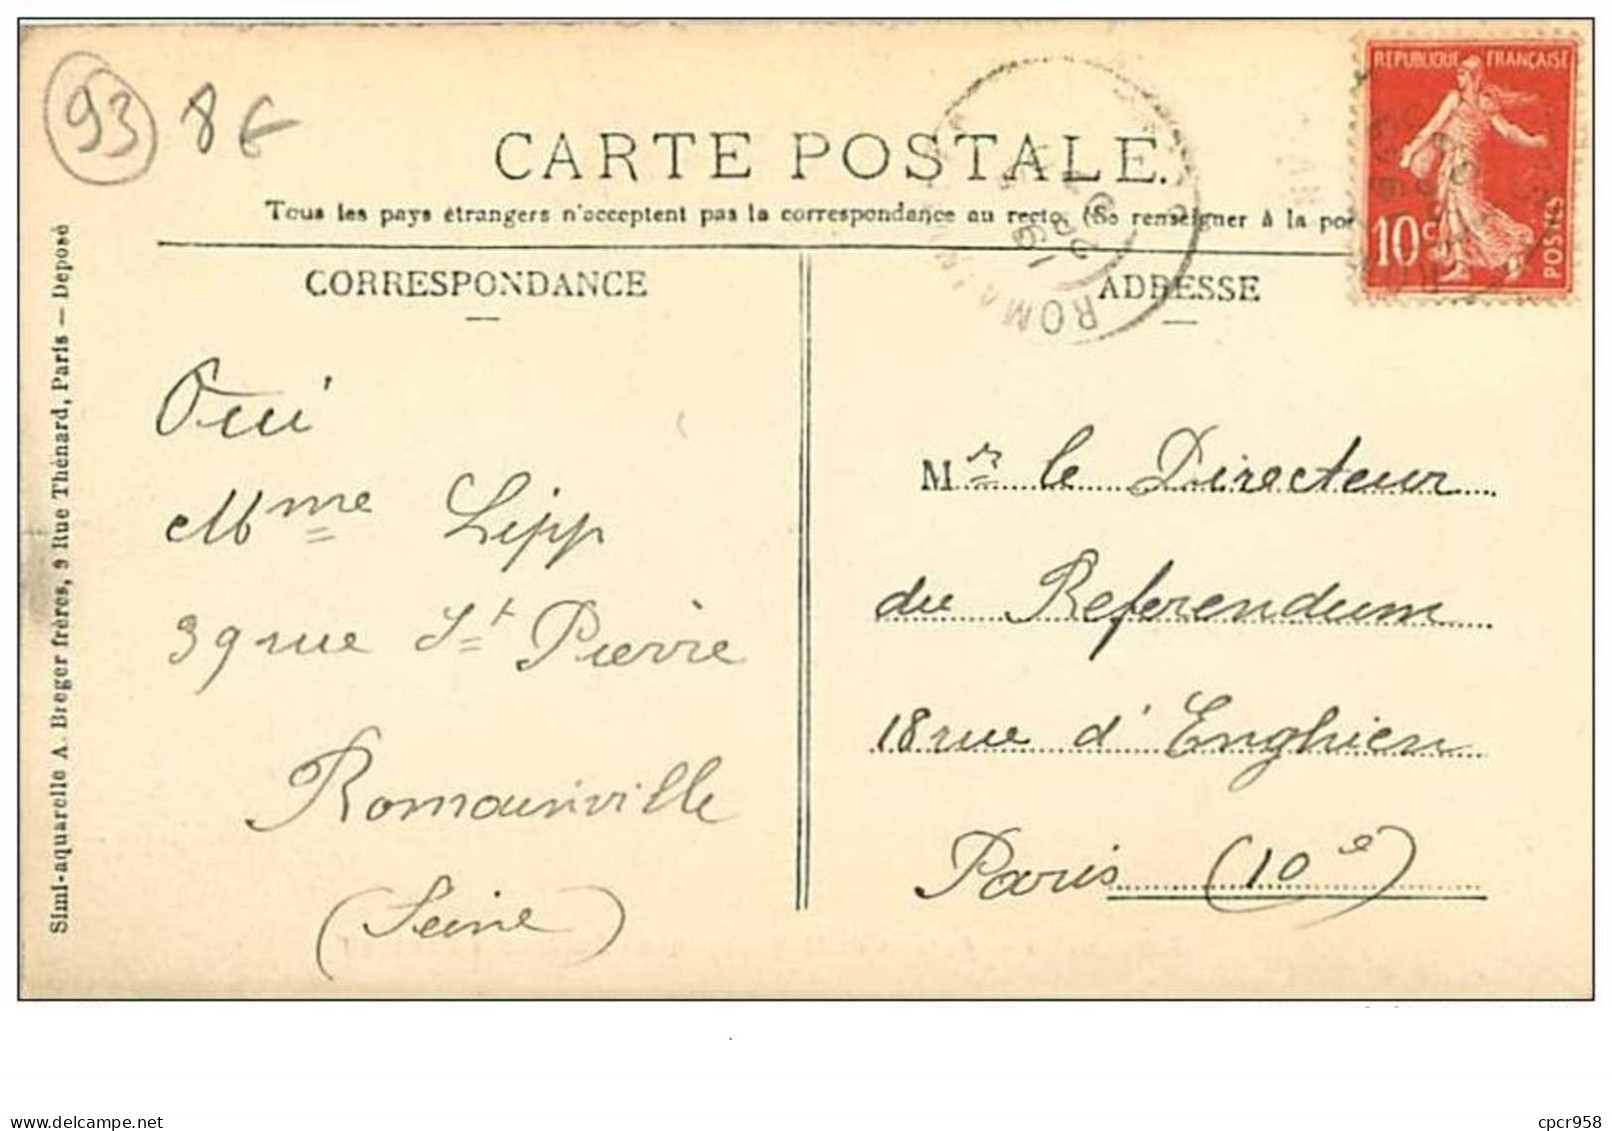 93 8€
CARTE POSTALE.
Tous les pays étrangers n'acceptent pas la correspondance au recto. (Se renseigner à la
REPUBLIQUE FRANÇAISE
10c
POSTES
CORRESPONDANCE
ADRESSE
Oui
Mme Lipp
39 rue St Pierre
Romainville
(Seine)
Mr le Directeur
du Referendum
18 rue d'Enghien
Paris (10e)
Simi-aquarelle A. Breger frères, 9 Rue Thénard, Paris — Déposé
www.delcampe.net
cpcr958